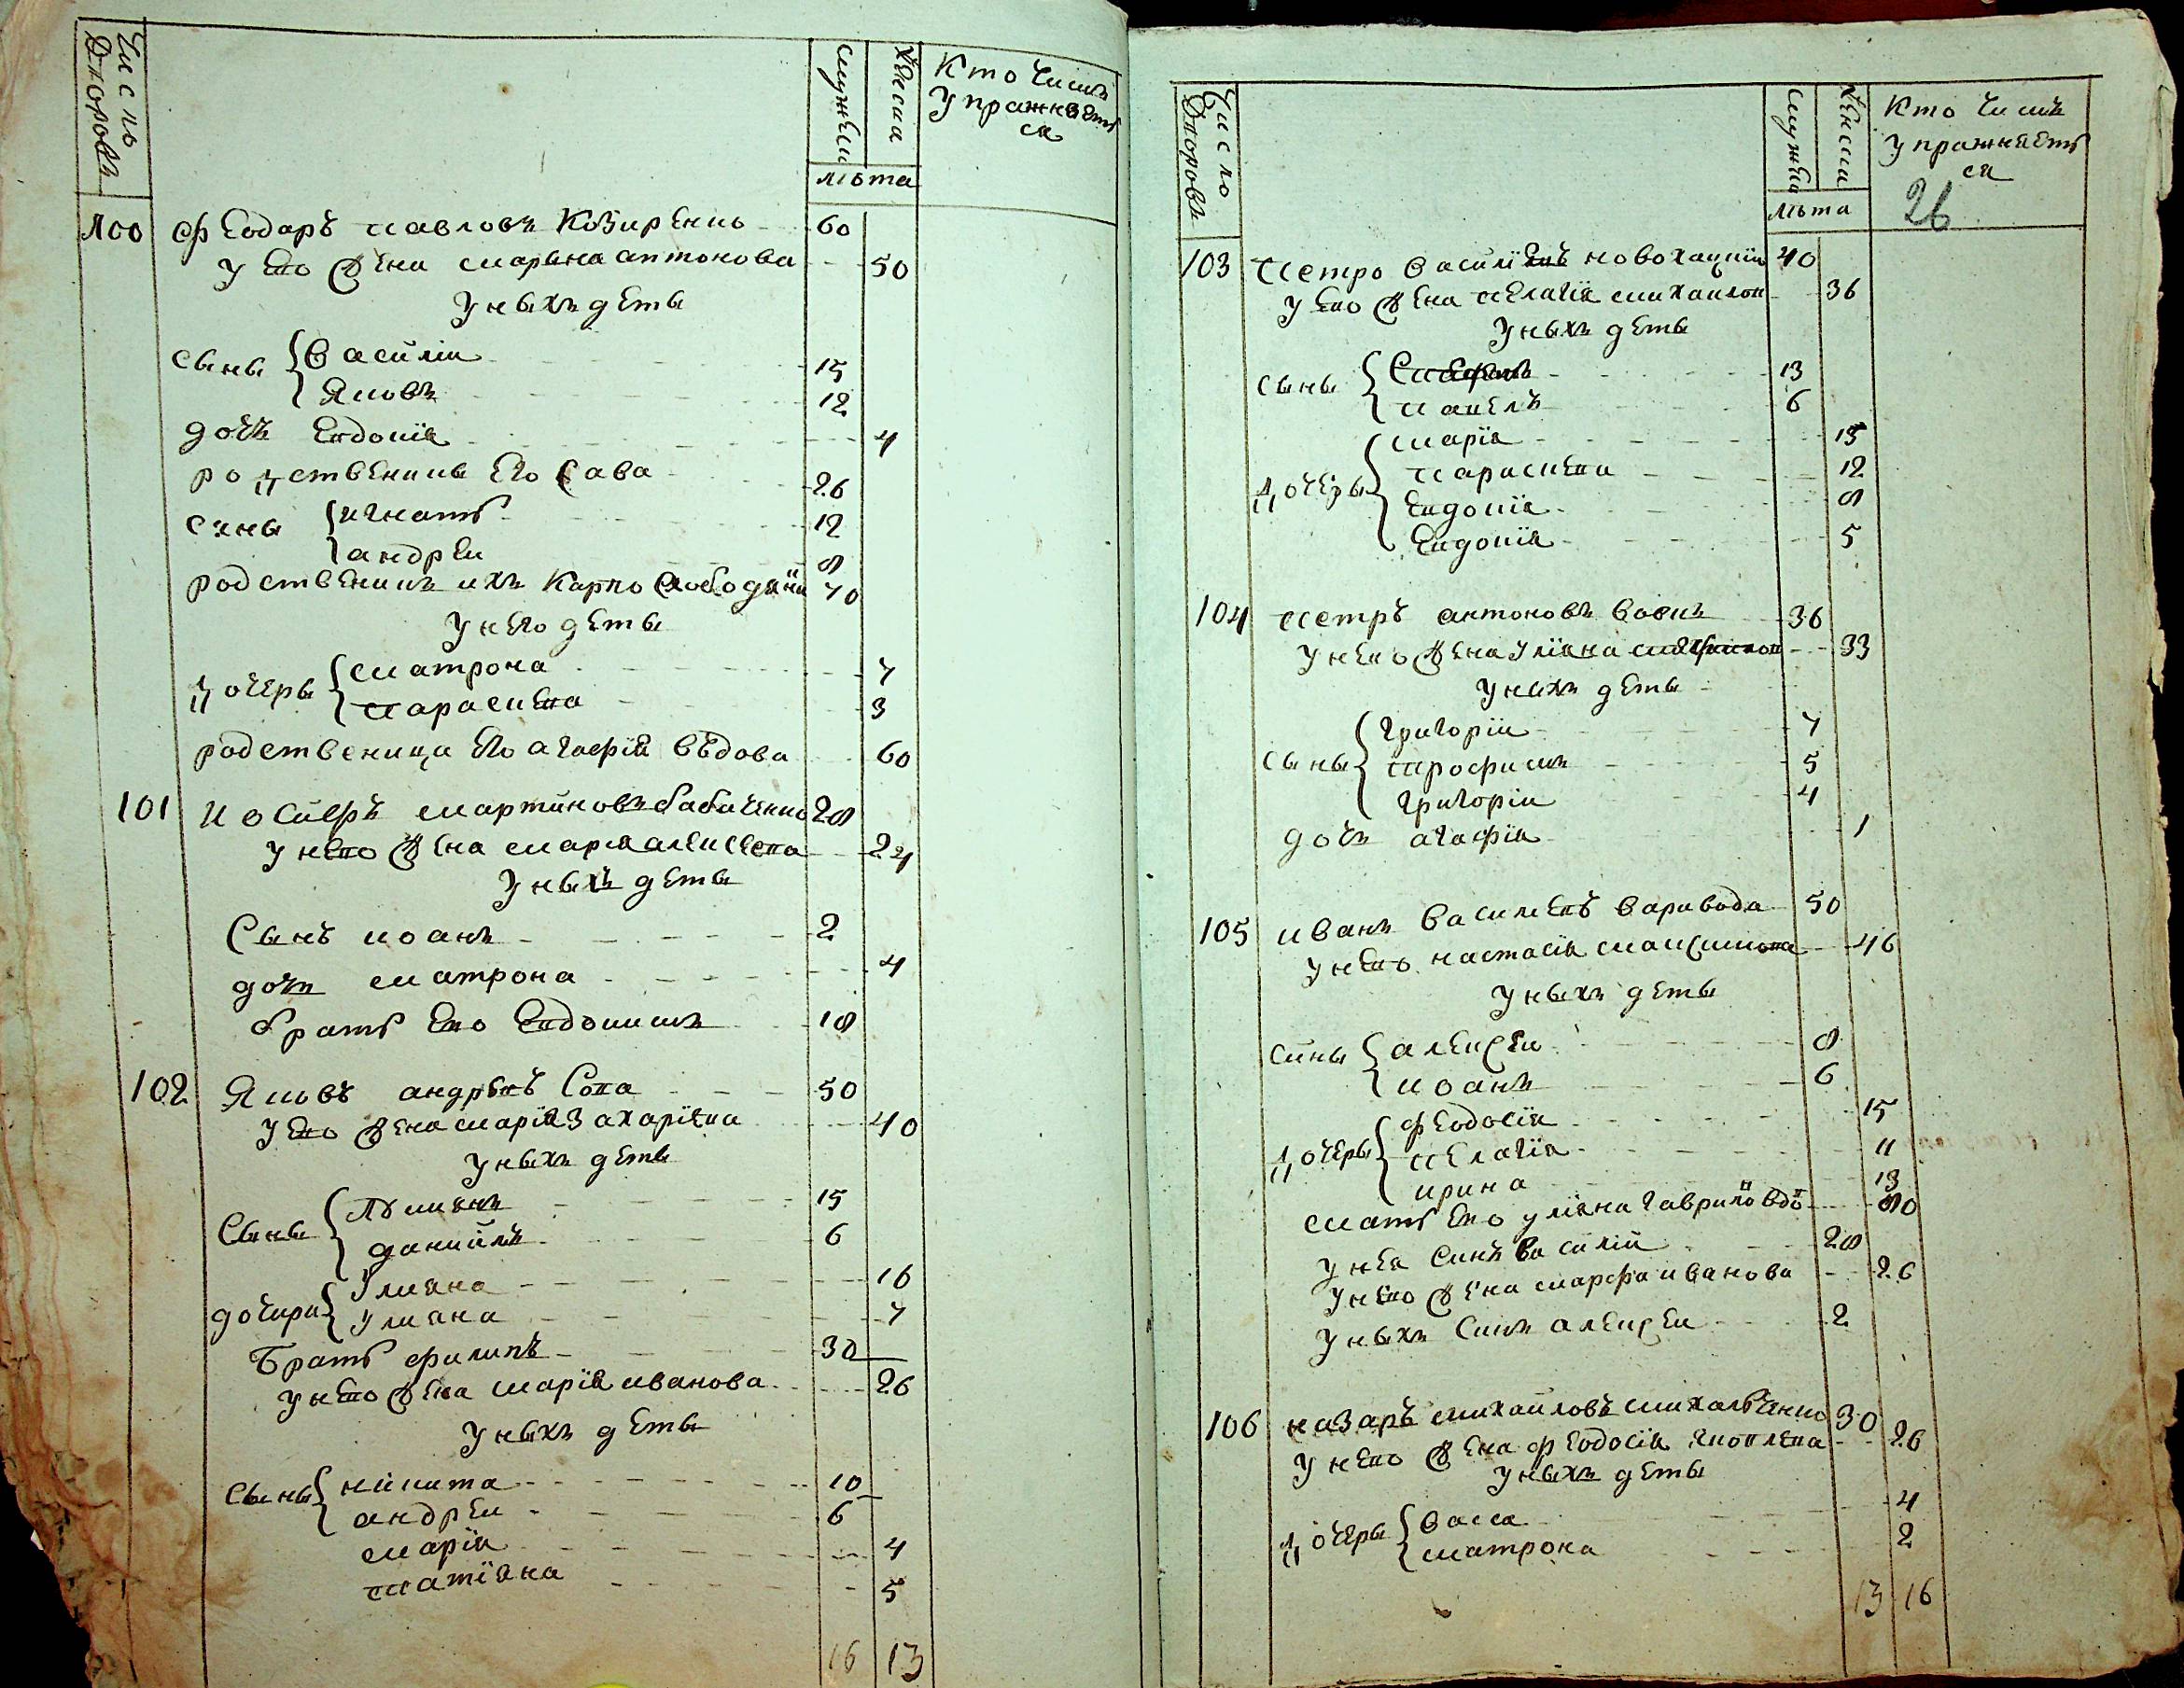 Число Дворовъ
мужеск
женска
Кто Чимъ
Упражняеть
ся
лѣта
100 Феодаръ Павловъ Козиренко 60
У Его жена Марьяна антонова 50
У ныхъ деты
Сыны Василіи 15
Яковъ 12
дочъ Евдокія 4
родственикъ Его Сава 26
Сины игнатъ 12
андреи 8
родственикъ ихъ Карпо Слободянк 70
У него деты
дочеры Матрона 7
Параскева 3
родственица Его агафія вѣдова 60
101 Иосифъ Мартиновъ бабаченко 28
У нево жена Мария алексеева 24
У ныхъ деты
Сынъ иоанъ 2
дочъ Матрона 4
братъ Ево Евдокимъ 18
102 Яковъ андреевъ Сова 50
У Ево жена Марія Захаріева 40
У ныхъ деты
Сыны 15
даниилъ 6
дочири Улияна 16
Улияна 7
Братъ филипъ 30
У нево жена Марія иванова 26
У ныхъ деты
Сыны никита 10
андреи 6
Марія 4
Татіяна 5
16 13
Число Дворовъ
мужеск
женска
Кто Чимъ
Упражняеть
ся
лѣта
26
103 Петро Василіевъ новохацкіи 40
У Ево жена Пелагія Михаилов 36
У ныхъ деты
Сыны 13
Павелъ 6
дочеры Марія 15
Параскева 12
Евдокія 8
Евдокія 5
104 Петръ антоновъ Вовкъ 36
У нево жена Улияна 33
У ныхъ деты
Сыны григоріи 7
трофимъ 5
григоріи 4
дочъ агафія 1
105 иванъ Василевъ Варивода 50
У нево настасія Максимова 46
У ныхъ деты
Сины алексеи 8
иоанъ 6
дочеры феодосія 15
Пелагія 11
ирина 13
Мать Ево улияна гаврилов вдо 80
У нея Синъ Василій 28
У нево жена Марфа иванова 26
У ныхъ Синъ алексеи 2
106 назаръ Михайловъ Михальченко 30
У нево жена феодосія Яковлева 26
У ныхъ деты
дочеры Васса 4
Матрона 2
13 16